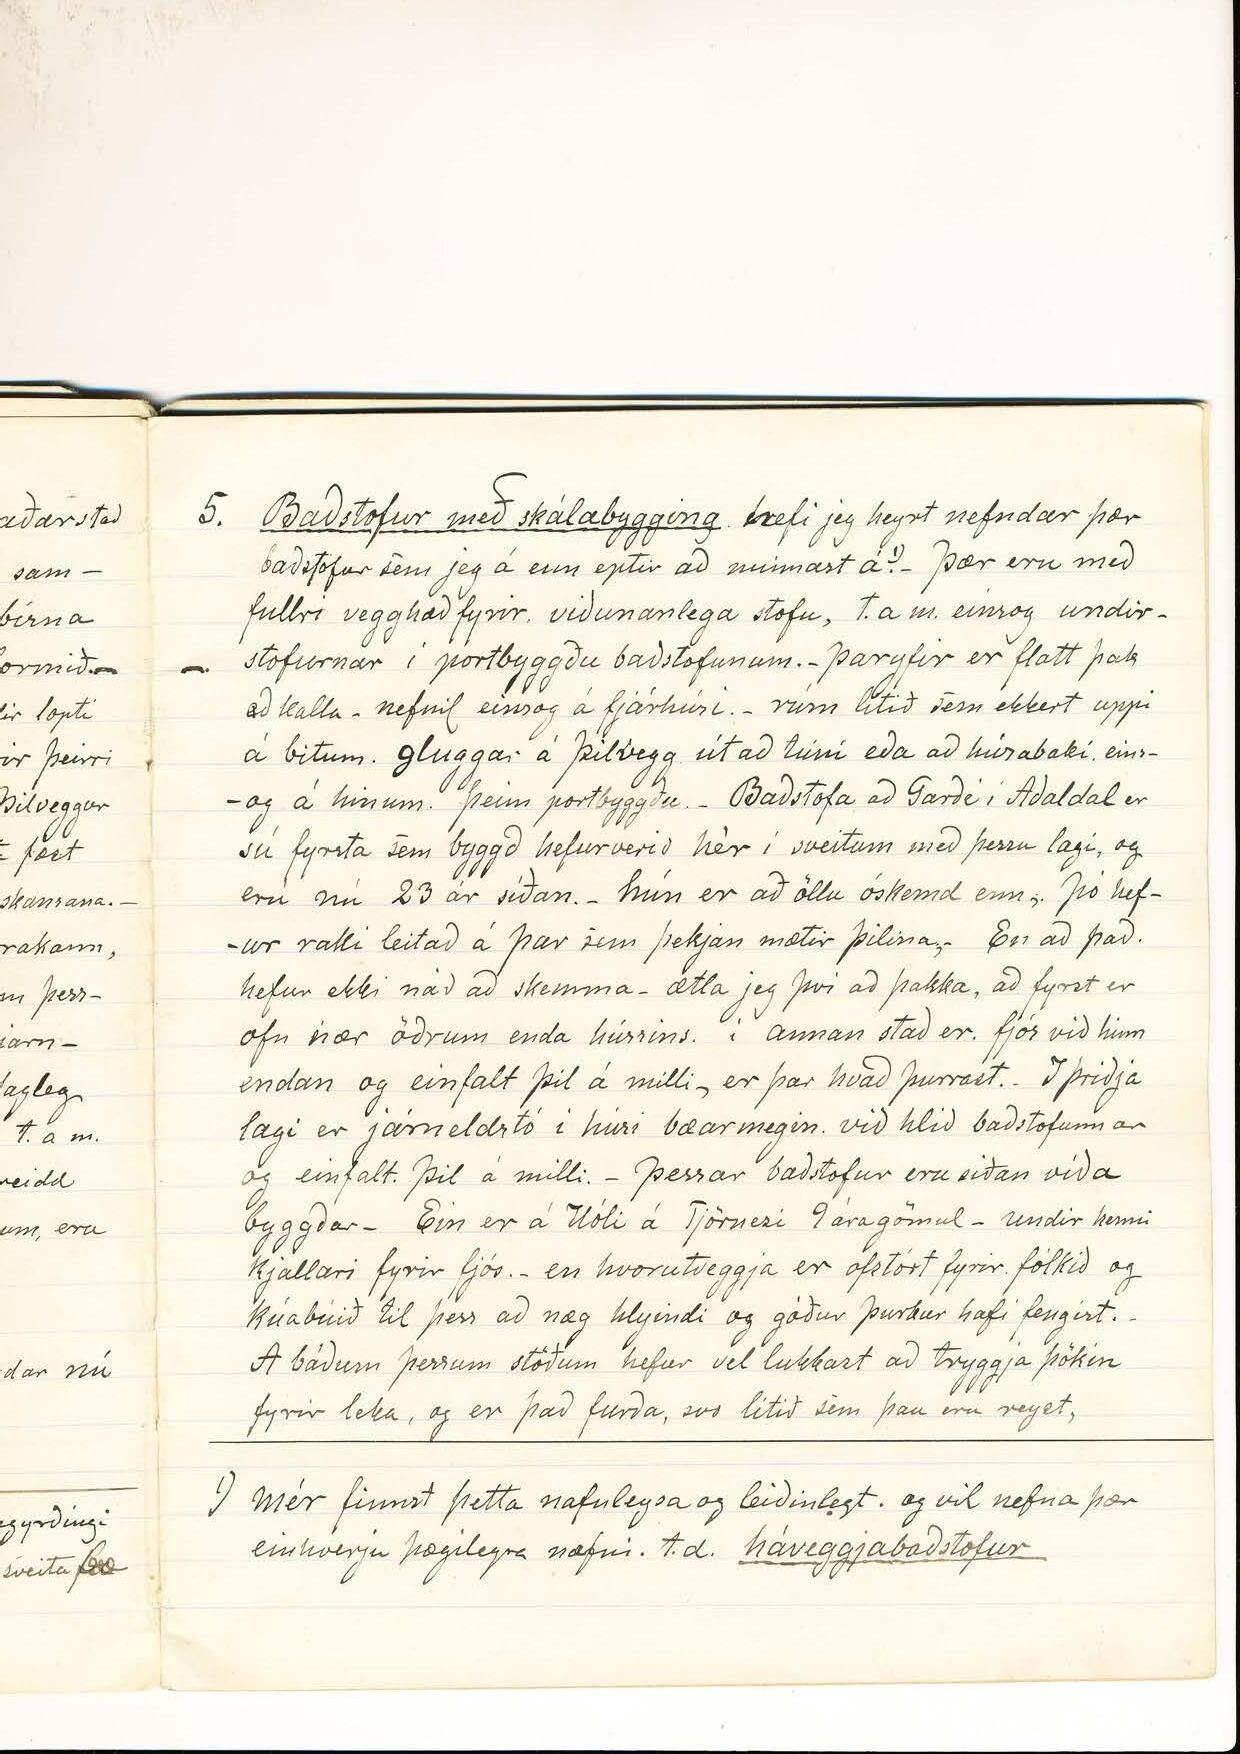 aðarstað
sam-
bízna
ormið.-
ir lopti
ir þeirri
Þilveggur
fæst
skansana.-
rakann,
m þess-
jarn-
dagleg
t. a m.
reidd
um, eru
dar nú
egyrðingi
sveita
5. Baðstofur með skálabygging hefi jeg heyrt nefndar þær
baðstofur sem jeg á enn eptir að minnast á1).- Þær eru með
fullri vegghæð fyrir viðunanlega stofu, t. a m. einsog undir-
stofurnar í portbyggðu baðstofunum.- Þaryfir er flatt þak
að kalla - nefnil einsog á fjárhúsi.- rúm lítið sem ekkert uppi
á bitum. gluggar á þilvegg út að túni eða að húsabaki eins-
-og á hinum. þeim portbyggðu.- Baðstofa að Garði í Aðaldal er
sú fyrsta sem byggð hefur verið hér í sveitum með þessu lagi, og
eru nú 23 ár síðan.- Hún er að öllu óskemd enn,. Þó hef-
-ur raki leitað á þar sem þekjan mætir þilina,- En að það.
hefur ekki náð að skemma - ætla jeg því að þakka, að fyrst er
ofn nær öðrum enda hússins. í annan stað er. fjós við hinn
endan og einfalt þil á milli, er þar hvað þurrast.- Í þriðja
lagi er járneldstó í húsi bæarmegin. við hlið baðstofunnar
og einfalt. þil á milli.- Þessar baðstofur eru síðan víða
byggðar- Ein er á Hóli á Tjörnesi 9 ára gömul - undir henni
kjallari fyrir fjós.- en hvorutveggja er ofstórt fyrir fólkið og
kúabúið til þess að næg hlyindi og góður þurkur hafi fengist.-
Á báðum þessum stöðum hefur vel lukkast að tryggja þökin
fyrir leka, og er það furða, svo lítið sem þau eru reyst,
1) Mér finnst þetta nafnleysa og leiðinlegt. og vil nefna þær
einhverju þægilegra nafni. t.d. háveggjabaðstofur